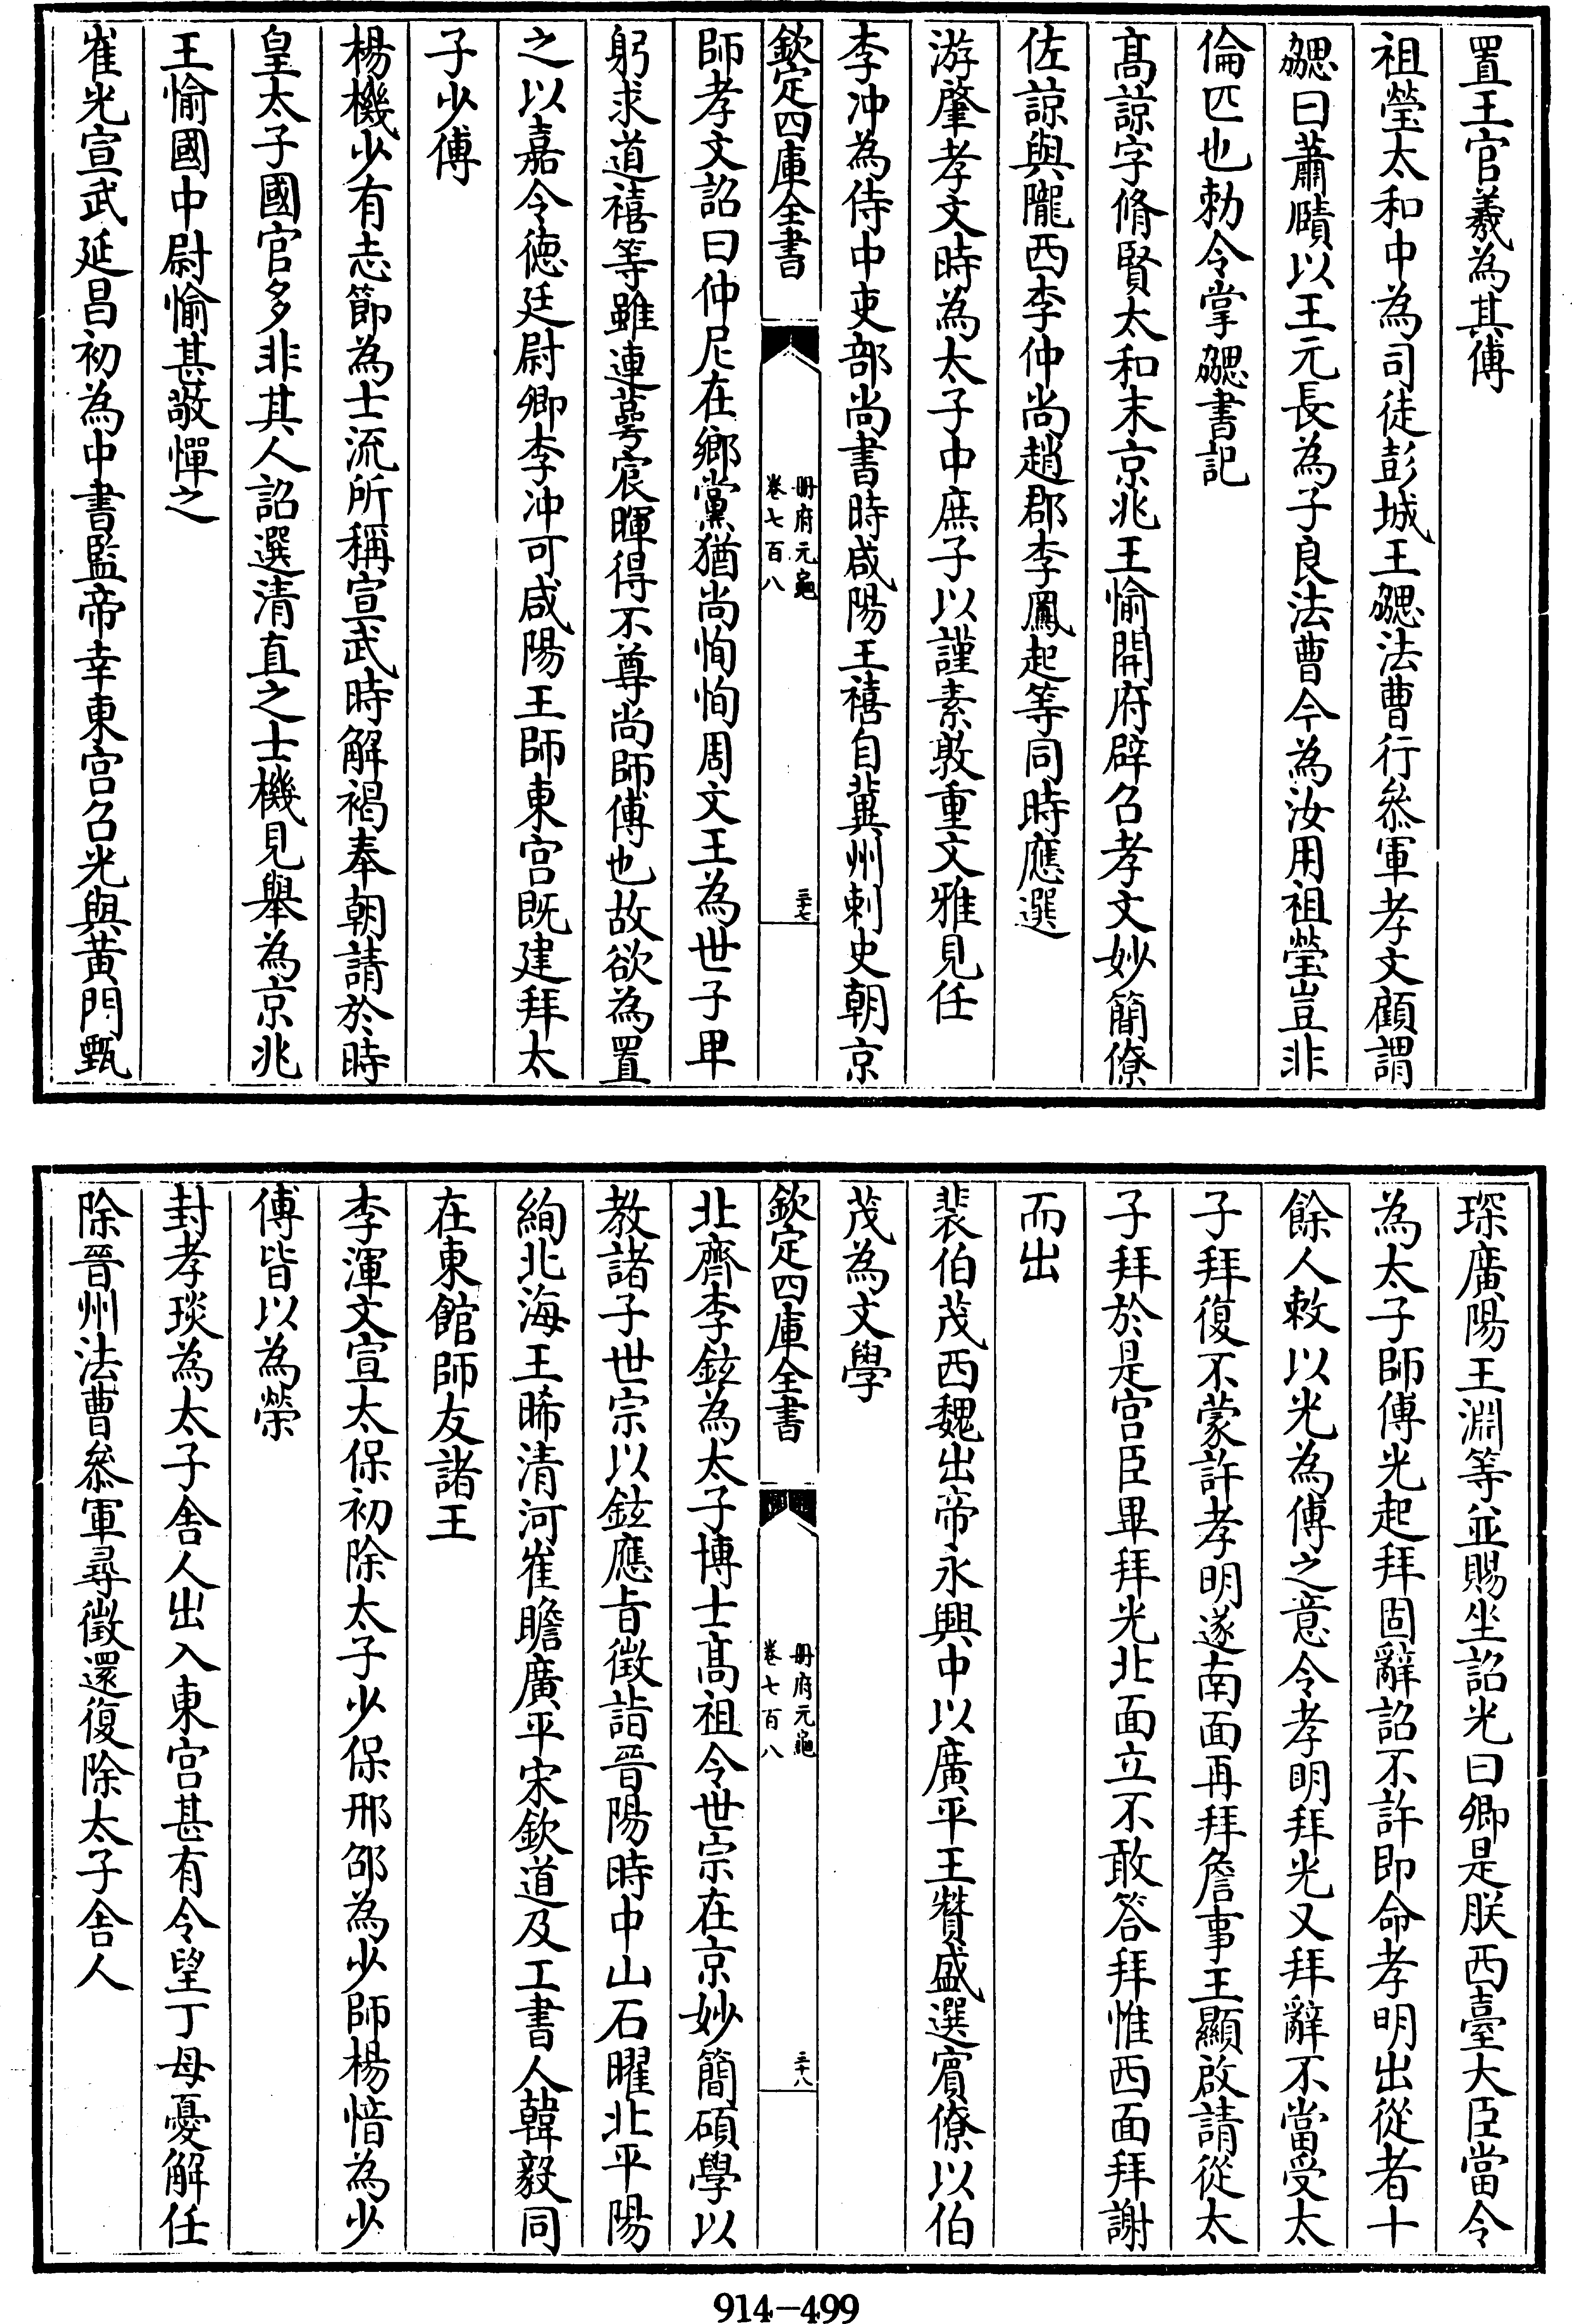 置王官羲為其傅
祖瑩太和中為司徒彭城王勰法曹行叅軍孝文顧謂
勰曰蕭賾以王元長為子良法曹今為汝用祖瑩豈非
倫匹也勅令掌勰書記
髙諒字脩賢太和末京兆王愉開府辟召孝文妙簡僚
佐諒與隴西李仲尚趙郡李鳳起等同時應選
游肇孝文時為太子中庶子以謹素敦重文雅見任
李冲為侍中吏部尚書時咸陽王禧自冀州刺史朝京
欽定四庫全書
冊府元龜
卷七百八
三十七
師孝文詔曰仲尼在鄉黨猶尚恂恂周文王為世子卑
躬求道禧等雖連蕚宸暉得不尊尚師傅也故欲為置
之以嘉令德廷尉卿李冲可咸陽王師東宮既建拜太
子少傅
楊機少有志節為士流所稱宣武時解褐奉朝請於時
皇太子國官多非其人詔選清直之士機見舉為京兆
王愉國中尉愉甚敬憚之
崔光宣武延昌初為中書監帝幸東宮召光與黃門甄
琛廣陽王淵等並賜坐詔光曰卿是朕西臺大臣當令
為太子師傅光起拜固辭詔不許即命孝明出從者十
餘人敕以光為傅之意令孝明拜光又拜辭不當受太
子拜復不蒙許孝明遂南面再拜詹事王顯啟請從太
子拜於是宮臣畢拜光北面立不敢答拜惟西面拜謝
而出
裴伯茂西魏出帝永興中以廣平王贊盛選賓僚以伯
茂為文學
欽定四庫全書
冊府元龜
卷七百八
三十八
北齊李鉉為太子博士髙祖令世宗在京妙簡碩學以
教諸子世宗以鉉應旨徵詣晉陽時中山石曜北平陽
絢北海王晞清河崔瞻廣平宋欽道及工書人韓毅同
在東館師友諸王
李渾文宣太保初除太子少保邢邵為少師楊愔為少
傅皆以為榮
封孝琰為太子舍人出入東宮甚有令望丁母憂解任
除晉州法曹叅軍尋徵還復除太子舍人
914-499